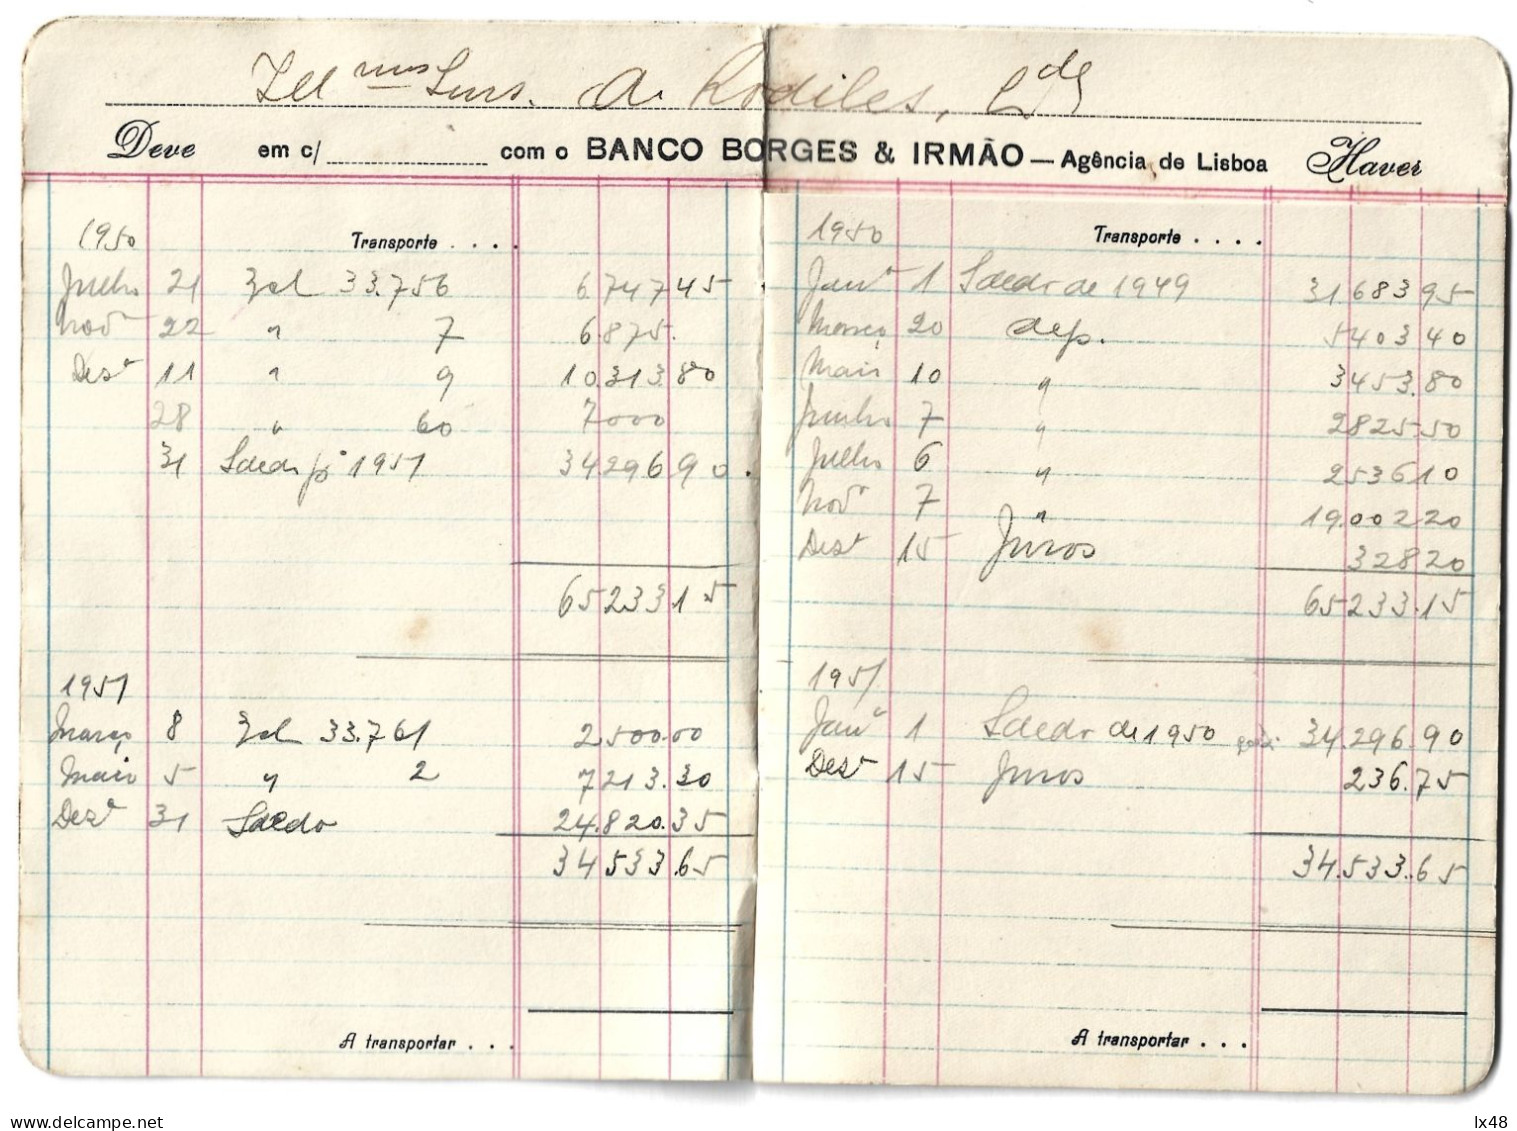 Ill.mos Snrs. A. Rodiles, Lda
Deve em c/ com o BANCO BORGES & IRMÃO — Agência de Lisboa Haver
1950 Transporte . . . .
Julho 21 33.756 6.747 45
Novo 22 " 7 6.875.
Deso 11 " 9 10.313.80
28 " 60 7000
31 Saldo pa 1951 34296 90
65233 15
1951
Março 8 33.761 2.500.00
Maio 5 " 2 7213.30
Dezo 31 Saldo 24.820.35
34533.65
A transportar . . .
1950 Transporte . . . .
Jano 1 Saldo de 1949 31683 95
Março 20 dep. 5403 40
Maio 10 " 3453.80
Junho 7 " 2825 50
Julho 6 " 2536 10
Novo 7 " 19.002 20
Dezo 15 Juros 328 20
65233.15
1951
Jano 1 Saldo de 1950 34.296.90
Dezo 15 Juros 236.75
34.533.65
A transportar . . .
delcampe.net
lx48